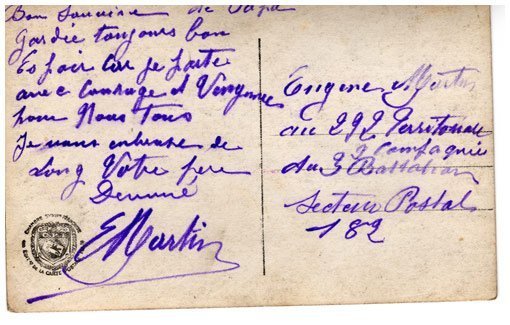 Bon Souvenir de Papa
Gardée toujours bon
Espoir car je parte
avec courage et Vengence
pour Nous tous
Je vous embrasse de
Long Votre pere
Devoué
E Martin
Eugene Martin
au 292 Territoriale
9 Compagnie
du 3 Battalion
Secteur Postal
182